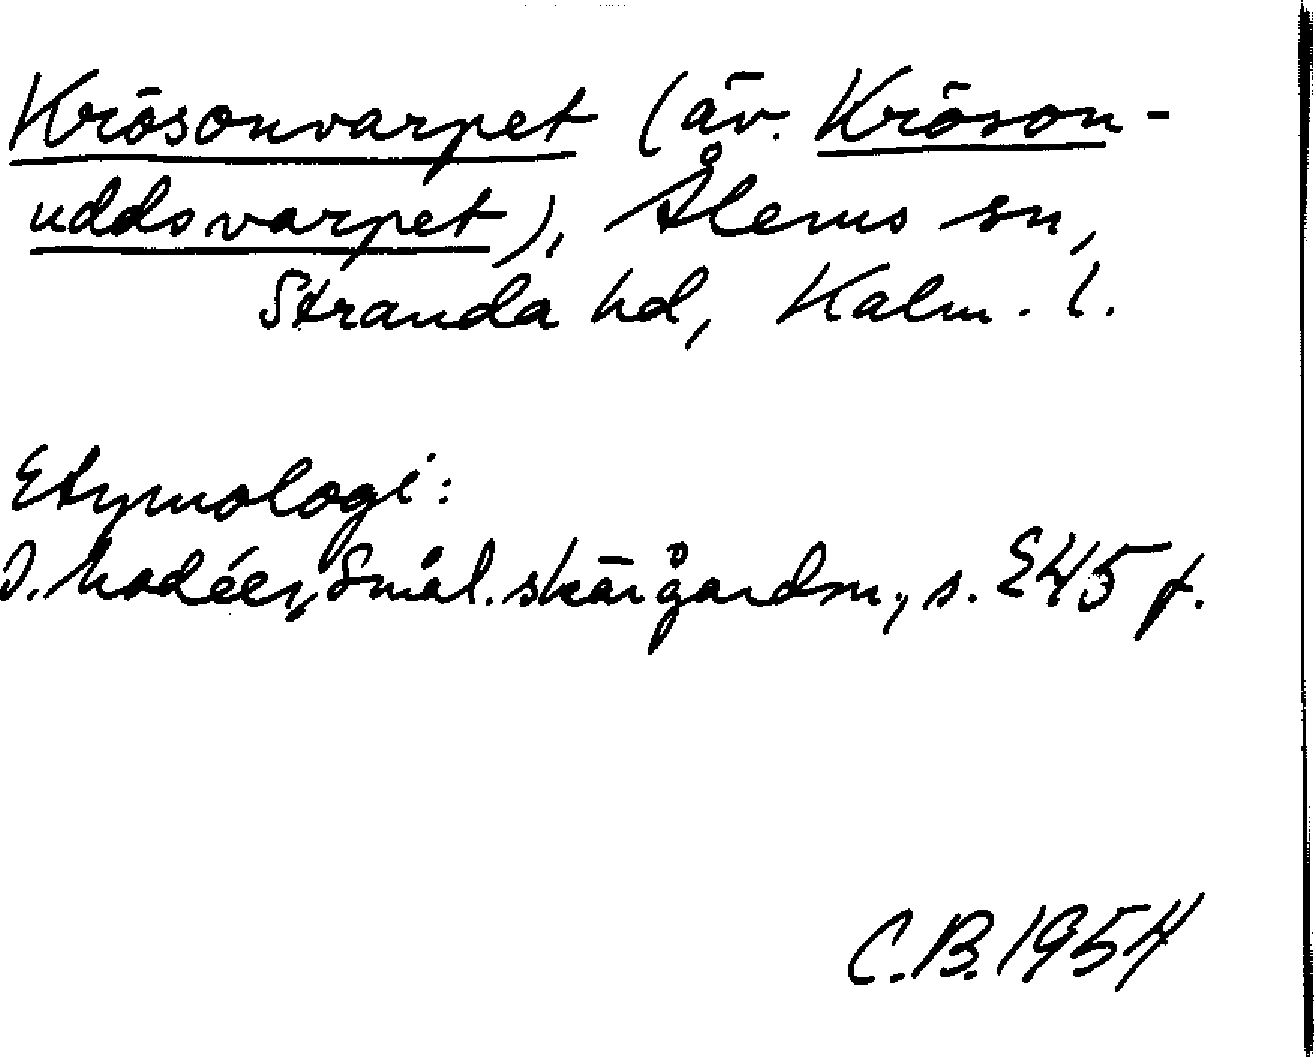 Krösonvarpet (äv. Kröson-
uddsvarpet), Ålems sn,
Stranda hd, Kalm. l.
Etymologi:
I. Modéer, Smål. skärgårdsn., s. 245 f.
C.B. 1954